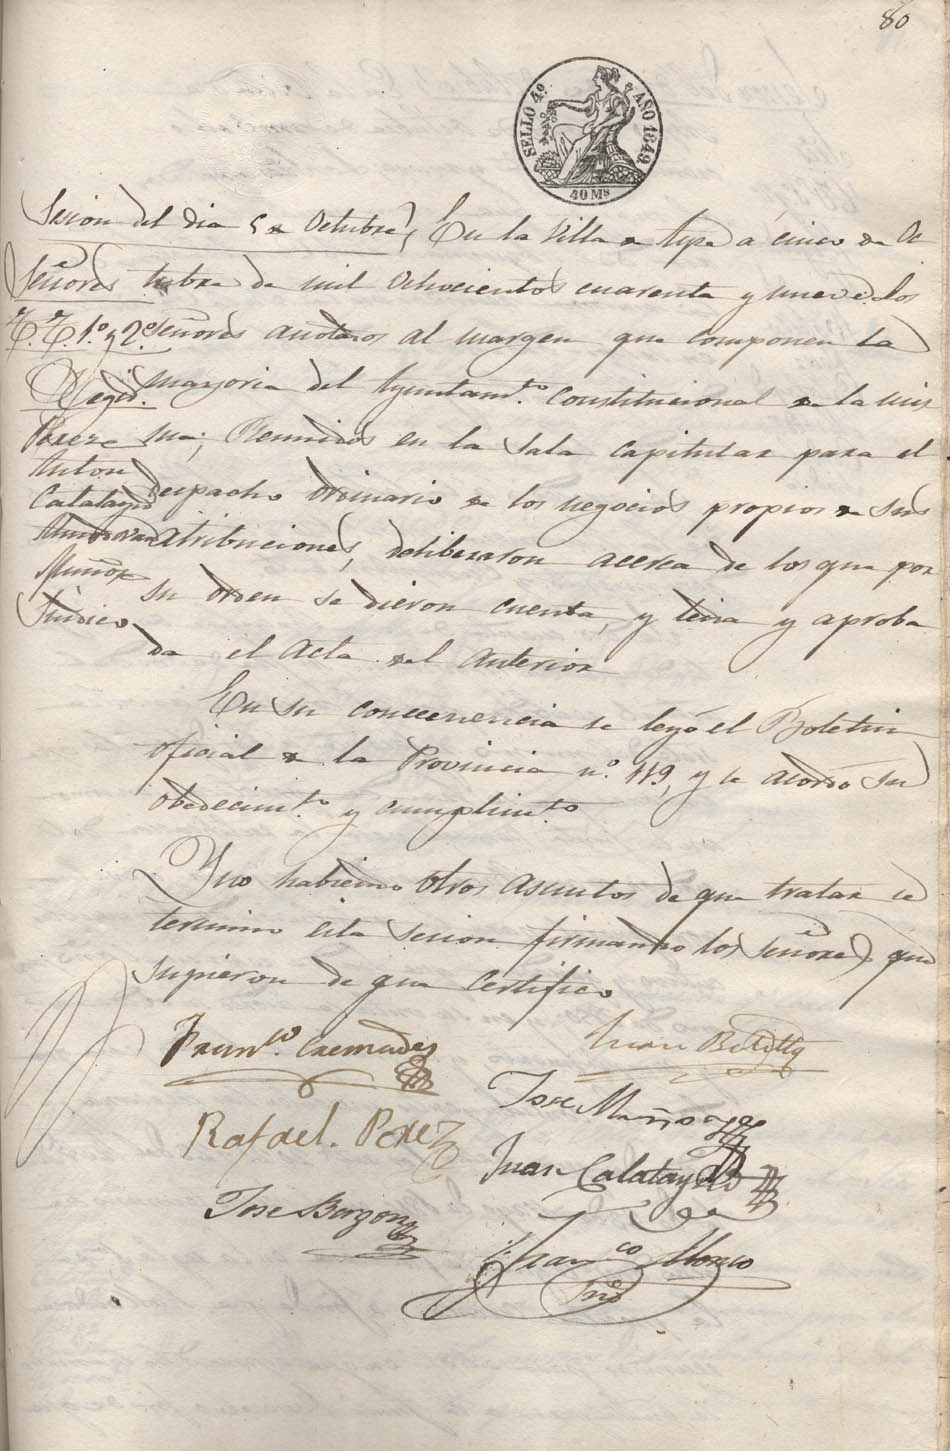 80
SELLO 4º AÑO 1849
40 Ms
Sesion del dia 5 de Octubre, En la Villa de Aspe a cinco de Oc
Señores tubre de mil Ochocientos cuarenta y nueve: los
T. T. 1.º y 2.º Señores anotados al margen que componen la
Regid.s mayoria del Ayuntam.to Constitucional de la mis
Perez ma; Reunidos en la Sala Capitular para el
Anton
despacho ordinario de los negocios propios de sus
Calatayud
atribuciones, deliberaron acerca de los que por
Muñoz
su orden se dieron cuenta, y leida y aproba
Sindico
da el Acta del anterior
En su consecuencia se leyó el Boletin
oficial de la Provincia nº. 119, y se acordó su
obedecim.to y cumplim.to
Y no habiendo otros asuntos de que tratar se
termino esta sesion firmando los Señores que
supieron de que Certifico
Fran.co Cremades
Juan
Jose Muñoz
Rafael. Perez
Juan Calatayud
Jose
Fran.co Alonso
Srio